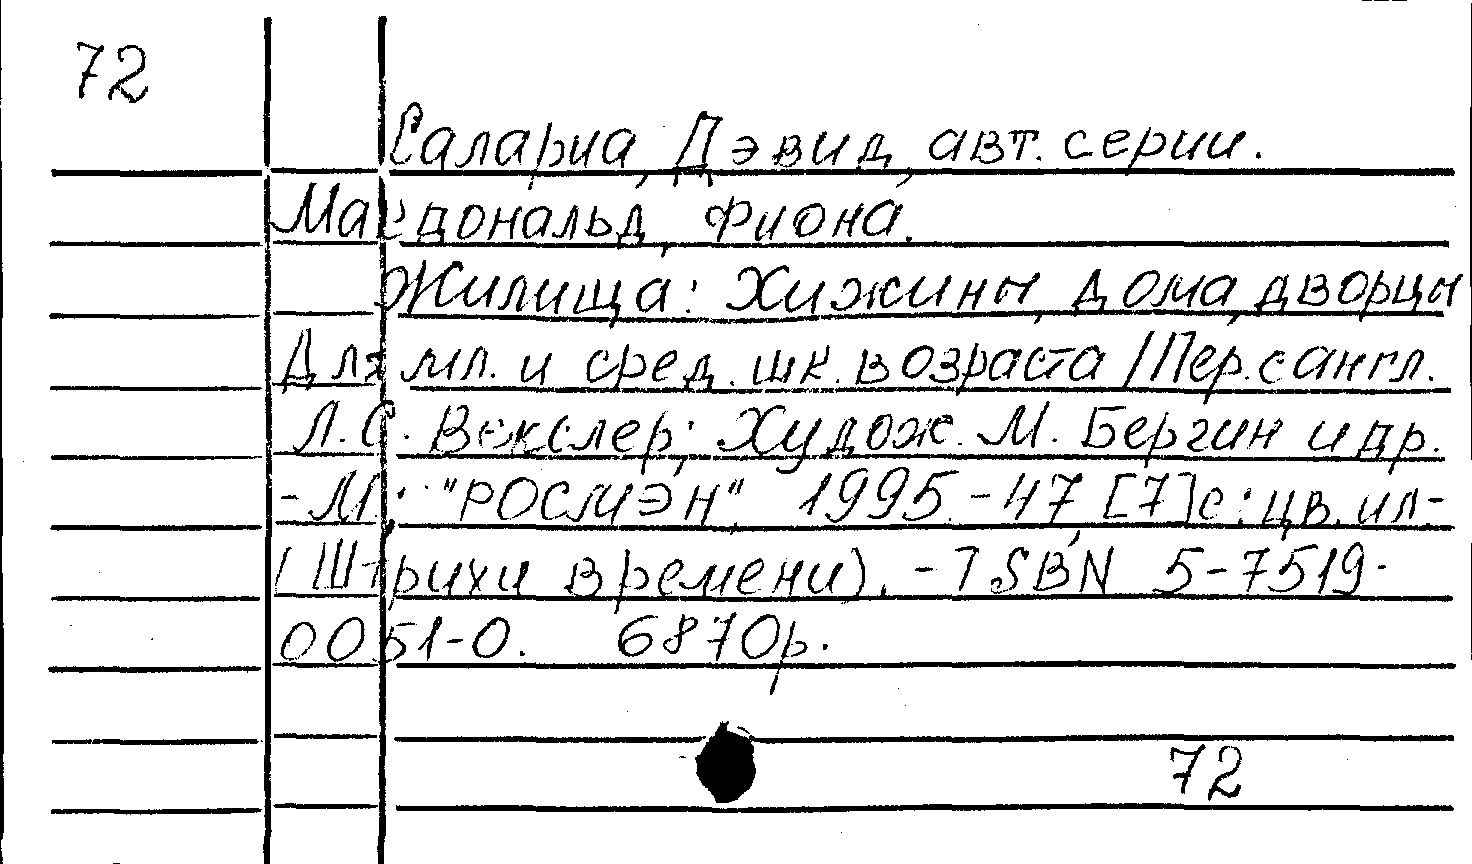 72
Салариа, Дэвид, авт. серии.
Макдональд, Фиона.
Жилища: Хижины, дома, дворцы
Для мл. и сред. шк. возраста / Пер. с англ.
Л.С. Векслер; Худож. М. Бергин и др.
- М.: "РОСМЭН", 1995. - 47, [7] с: цв. ил -
(Штрихи времени). - ISBN 5-7519-
0051-0. 6870р.
72